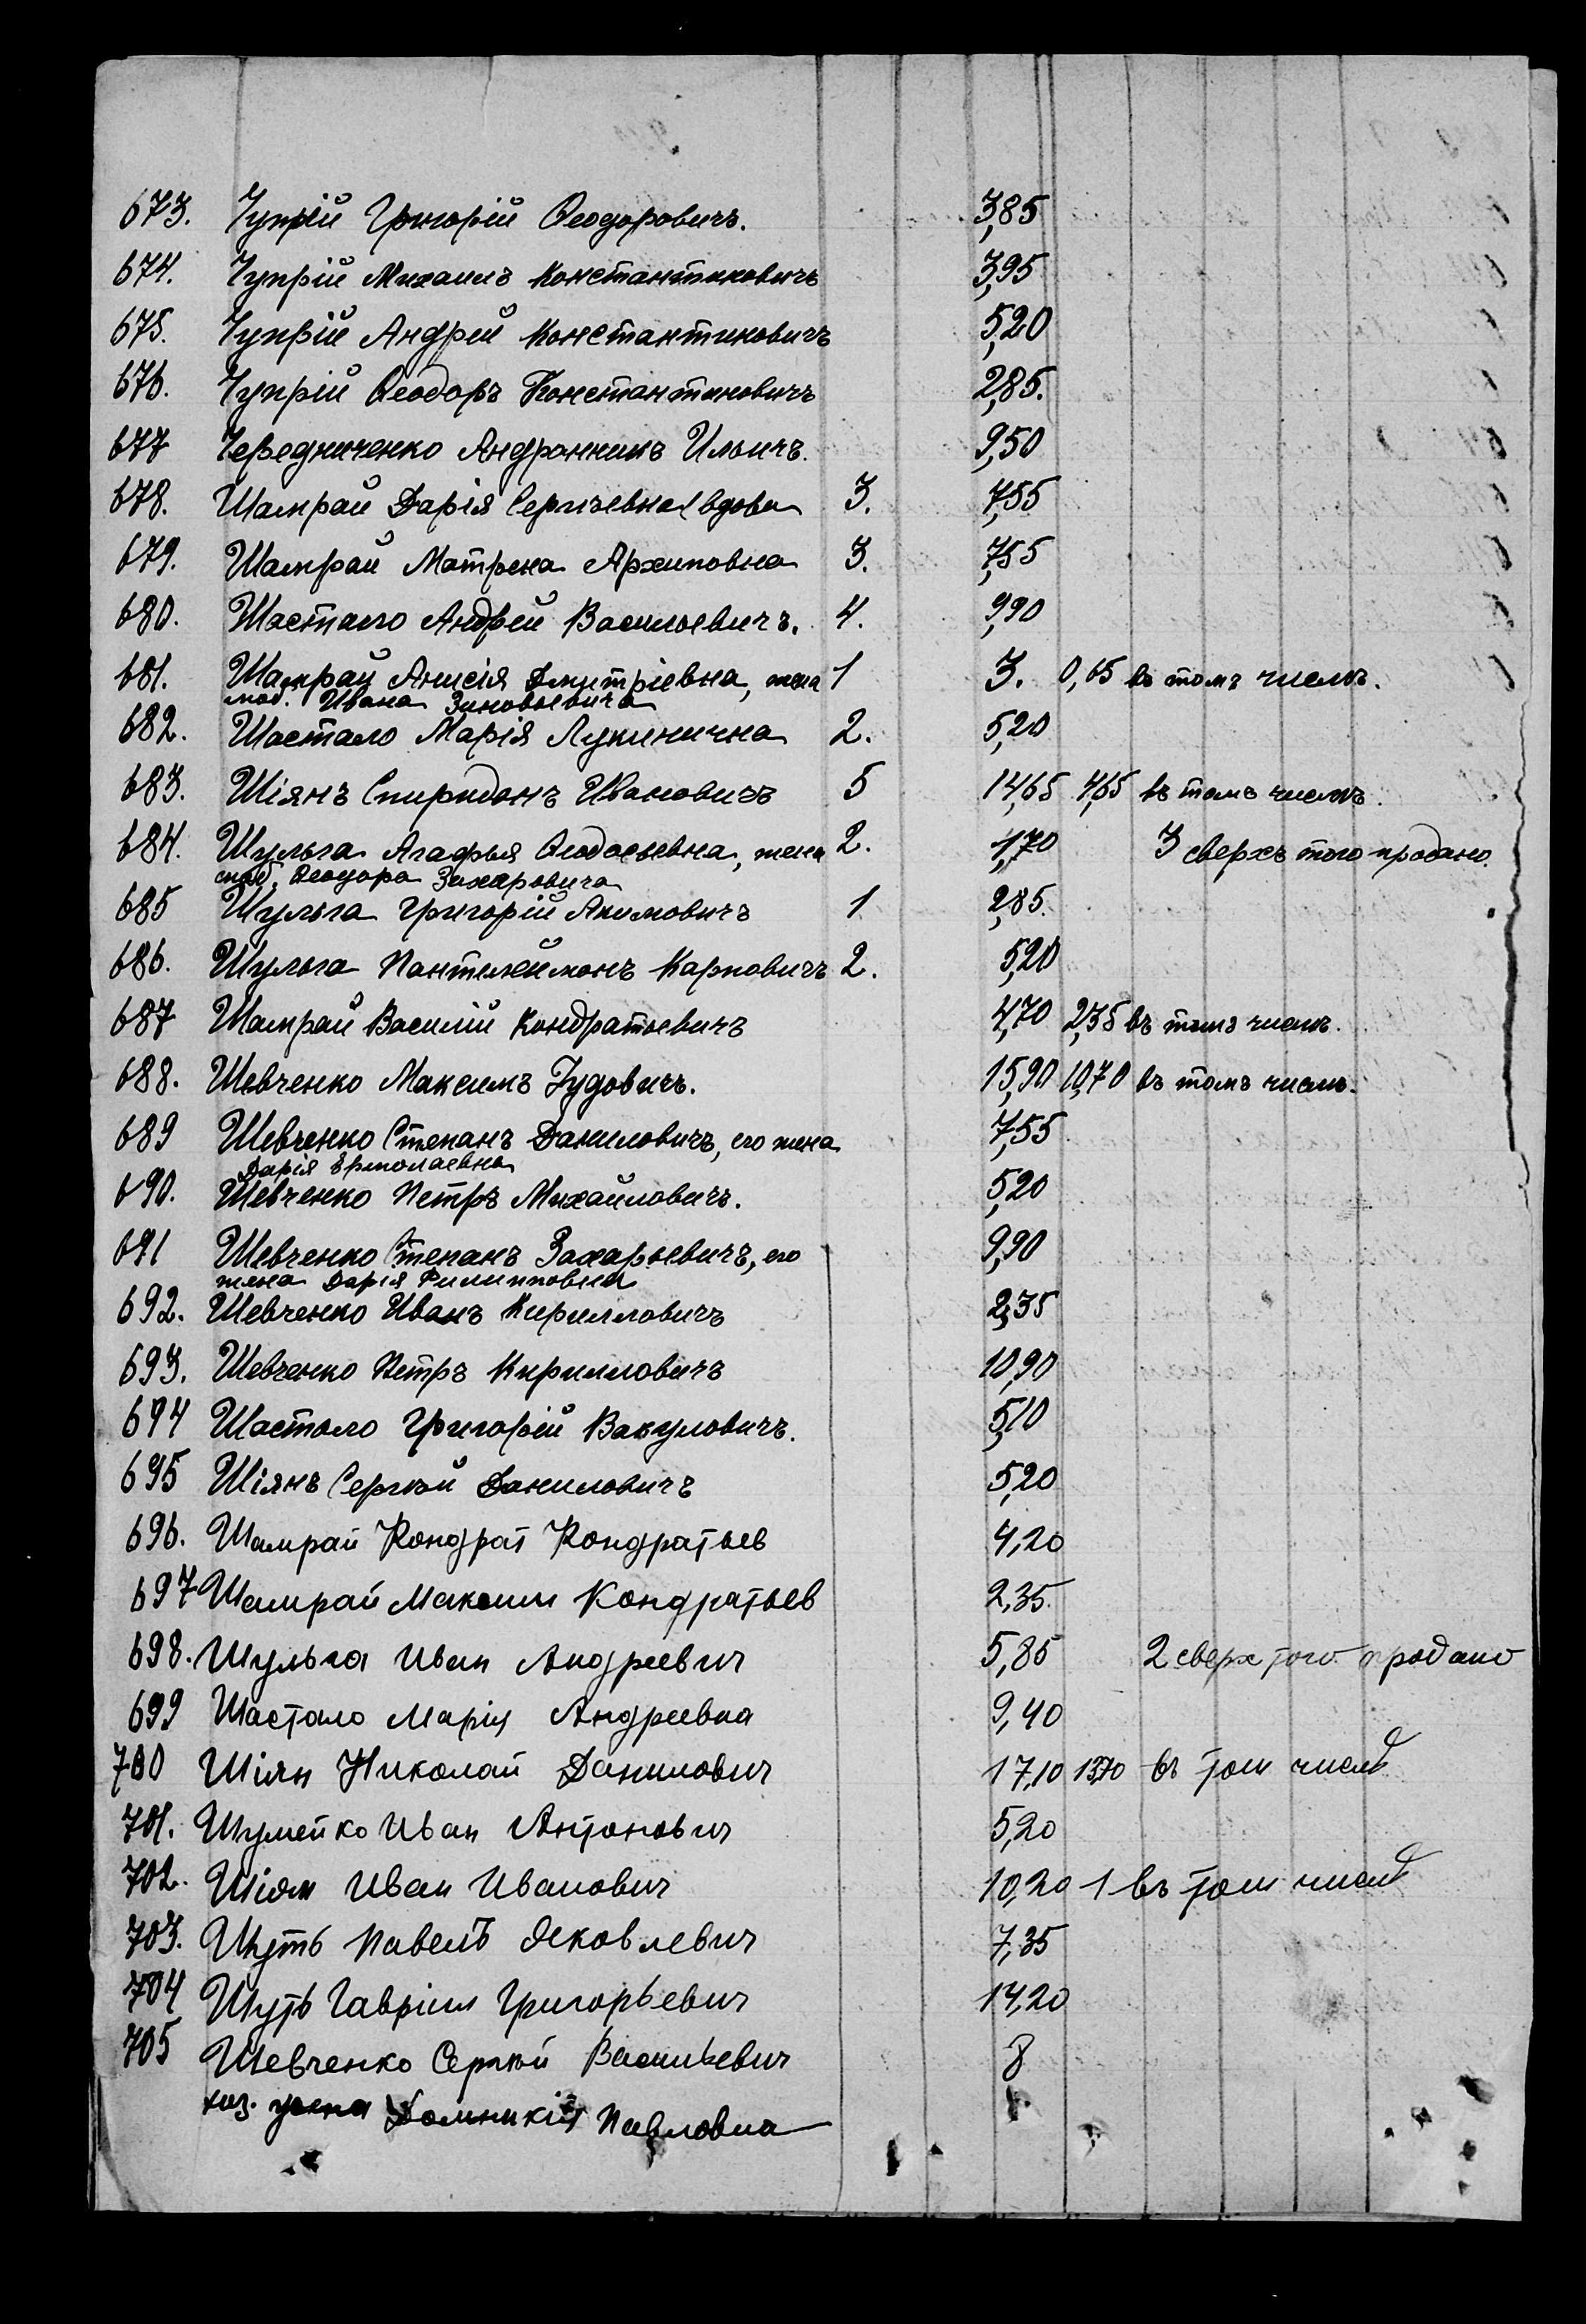 673. Чупрій Григорій Ѳеодоровичъ. 3,85
674. Чупрій Михаилъ Константиновичъ 3,95
675. Чупрій Андрей Константиновичъ 5,20
676. Чупрій Ѳеодоръ Константиновичъ 2,85.
677 Чередниченко Андроникъ Ильичъ. 9,50
678. Шамрай Дарія Сергѣевна вдова 3. 7,55
679. Шамрай Матрена Архиповна 3. 7,55
680. Шастало Андрей Васильевичъ. 4. 9,90
681. Шамрай Анисія Дмитріевна, жена 1 3. 0,65 въ томъ числѣ.
моб. Ивана Зиновьевича
682. Шастало Марія Лукинична 2. 5,20
683. Шіянъ Спиридонъ Ивановичъ 5 14,65 4,65 въ томъ числѣ.
684. Шульга Агафья Ѳеодосьевна, жена 2. 1,70 3 сверхъ того продано.
моб. Ѳеодора Захаровича
685 Шульга Григорій Акимовичъ 1 2,85.
686. Шульга Пантелеймонъ Карповичъ 2. 5,20
687 Шамрай Василій Кондратьевичъ 4,70 2,35 въ томъ числѣ.
688. Шевченко Максимъ Іудовичъ. 15,90 10,70 въ томъ числѣ.
689 Шевченко Степанъ Даниловичъ, его жена 7,55
Дарія Ермолаевна
690. Шевченко Петръ Михайловичъ. 5,20
691 Шевченко Степанъ Захарьевичъ, его 9,90
жена Дарія Филипповна
692. Шевченко Иванъ Кирилловичъ 2,35
693. Шевченко Петръ Кирилловичъ 10,90
694 Шастало Григорій Вакуловичъ. 5,10
695 Шіянъ Сергѣй Даниловичъ 5,20
696. Шамрай Кондрат Кондратьев 4,20
697 Шамрай Максим Кондратьев 2,35.
698. Шульга Иван Андреевич 5,85 2 сверх того продано
699 Шастало Марія Андреевна 9,40
700 Шіян Николай Данилович 17,10 13,70 въ том числѣ
701. Шумейко Иван Антонович 5,20
702. Шіян Иван Иванович 10,20 1 въ том числѣ
703. Шуть Павелъ Яковлевич 7,35
704 Шуть Гавріил Григорьевич 14,20
705 Шевченко Сергѣй Васильевич 8
жена Домникія Павловна